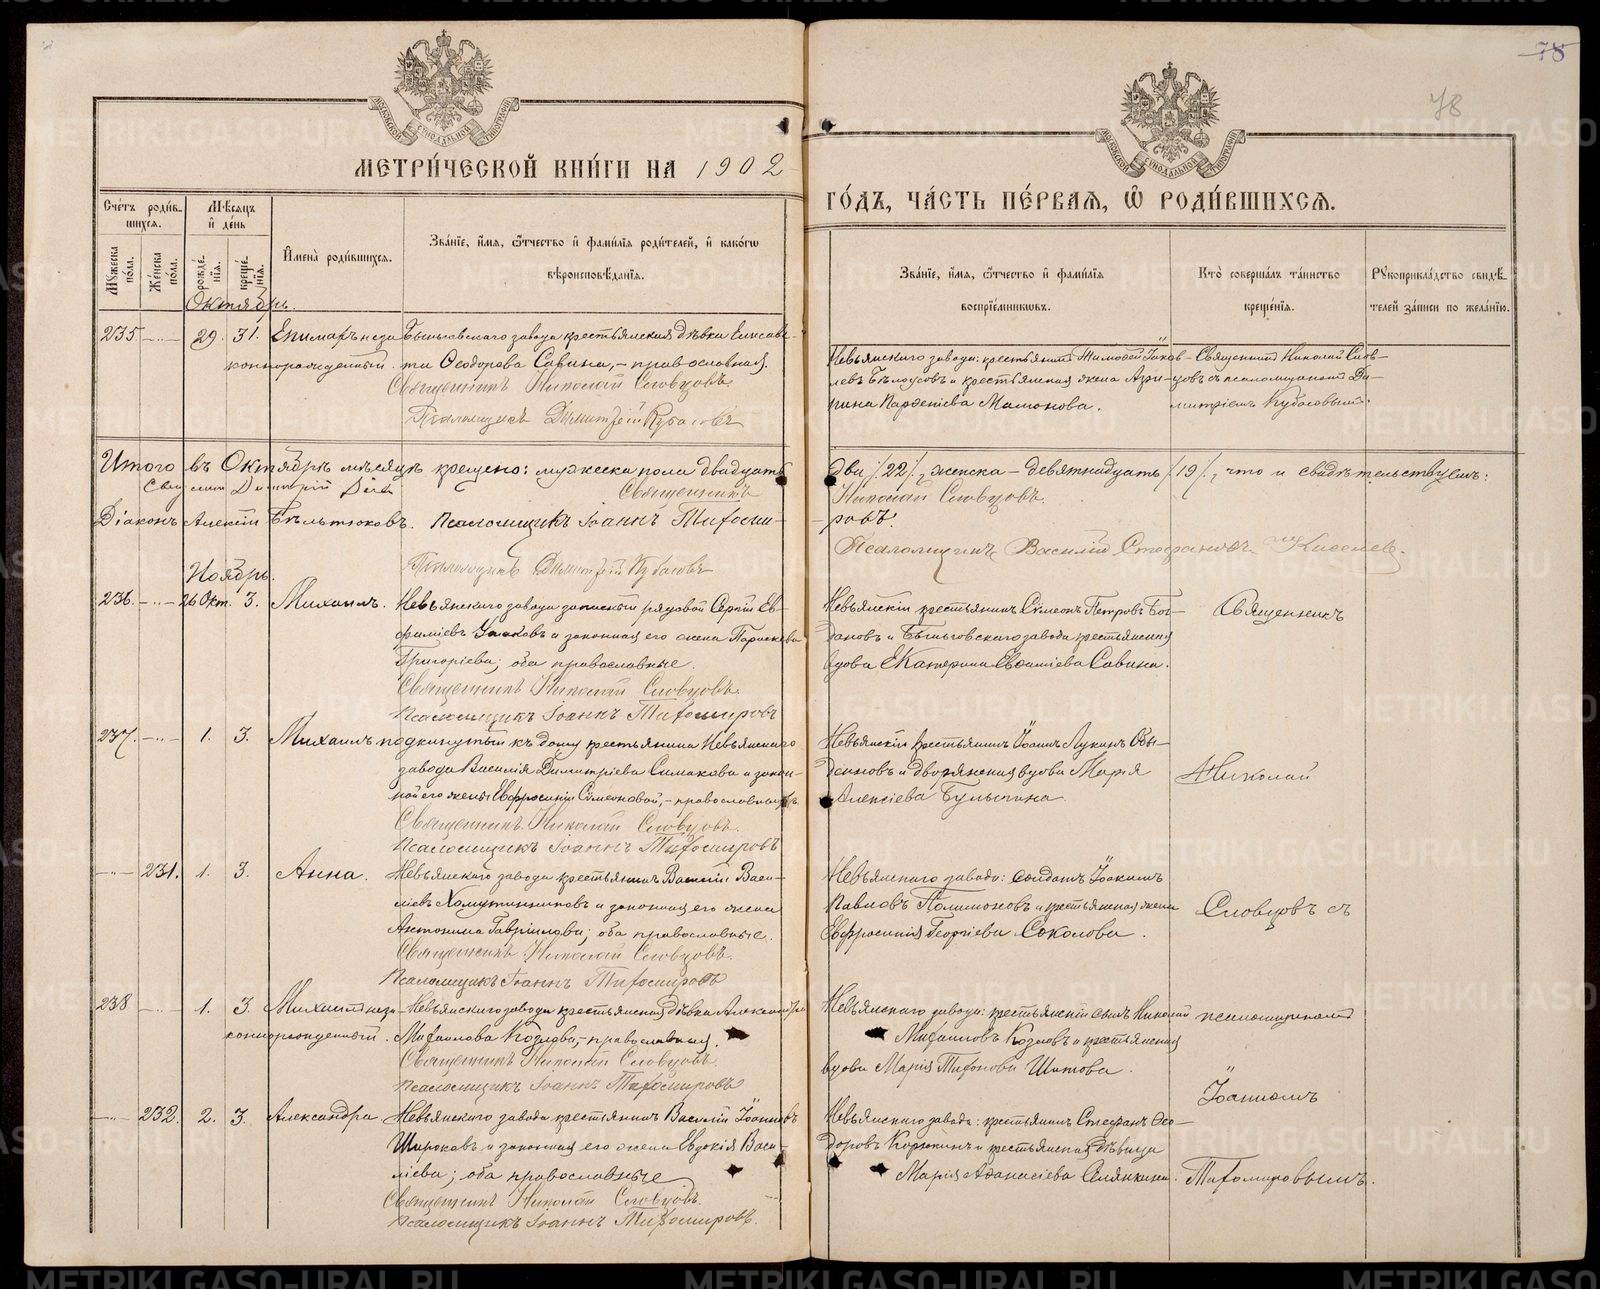 78
78
МОСКОВСКОЙ СѴНОДАЛЬНОЙ ТИПОГРАФІИ
МОСКОВСКОЙ СѴНОДАЛЬНОЙ ТИПОГРАФІИ
МЕТРИ́ЧЕСКОЙ КНИ́ГИ НА 1902
ГО́ДЪ, ЧА́СТЬ ПЕ́РВАѦ, Ѿ РОДИ́ВШИХСѦ.
Сче́тъ роди́в-
шихся.
Мꙋ́жеска по́ла.
Же́нска по́ла.
Мѣ́сяцъ
и҆ де́нь
рожде́нїя.
креще́нїя.
И҆мена̀ роди́вшихся.
Зва́нїе, и҆́мя, ѻ҆́тчество и҆ фами́лїя роди́телей, и҆ како́гѡ
вѣроисповѣ́данїя.
Зва́нїе, и҆́мя, ѻ҆́тчество и҆ фами́лїя
воспрїе́мниковъ.
Кто̀ соверша́лъ та́инство
креще́нїя.
Рꙋкоприкла́дство свидѣ́-
телей за́писи по жела́нїю.
Октябрь.
235 —"— 29. 31. Епимархъ неза-
коннорожденный.
Быньговскаго завода крестьянская дѣвка Елисаве-
та Ѳеодорова Савина, – православная.
Священникъ Николай Словцовъ
Псаломщикъ Димитрій Кубасовъ
Невьянскаго завода: крестьянинъ Тимоѳей Іаков-
левъ Бѣлоусовъ и крестьянская жена Ари-
рина Парѳеніева Мамонова.
Священникъ Николай Слов-
цовъ съ псаломщикомъ Ди-
митріемъ Кубасовымъ.
Итого въ Октябрѣ мѣсяцѣ крещено: мужеска пола двадцать
два /22/, женска – девятнадцать /19/, что и свидѣтельствуемъ:
Священникъ
Николай Словцовъ.
Діаконъ Алексій Бѣльтюковъ. Псаломщикъ Іоаннъ Тихоми-
ровъ.
Псаломщикъ Василій Стефановъ Киселев.
Псаломщикъ Димитрій Кубасовъ
Ноябрь.
236. —"— 26 Окт. 3. Михаилъ.
Невьянскаго завода запасный рядовой Сергій Ев-
фиміевъ Ушаковъ и законная его жена Параскева
Григоріева; оба православные.
Священникъ Николай Словцовъ.
Псаломщикъ Іоаннъ Тихомировъ
Невьянскій крестьянинъ Сѵмеонъ Петровъ Бог-
дановъ и Быньговскаго завода крестьянская
вдова Екатерина Евфиміева Савина.
Священникъ
237. —"— 1. 3. Михаилъ подкинутый къ дому крестьянина Невьянскаго
завода Василія Димитріева Симакова и закон-
ной его жены Евфросиніи Сѵмеоновой, – православныхъ
Священникъ Николай Словцовъ.
Псаломщикъ Іоаннъ Тихомировъ
Невьянскій крестьянинъ Іоаннъ Лукинъ
и дворянская вдова Марія
Алексіева Булыгина.
Николай
—"— 231. 1. 3. Анна.
Невьянскаго завода крестьянинъ Василій Васи-
ліевъ Хомутинниковъ и законная его жена
Антонина Гавріилова; оба православные.
Священникъ Николай Словцовъ.
Псаломщикъ Іоаннъ Тихомировъ
Невьянскаго завода: солдатъ Іоакимъ
Павловъ Полимоновъ и крестьянская жена
Евфросинія Георгіева Соколова.
Словцовъ съ
238 —"— 1. 3. Михаилъ неза-
коннорожденный.
Невьянскаго завода крестьянская дѣвка Александра
Михаилова Козлова, – православная.
Священникъ Николай Словцовъ.
Псаломщикъ Іоаннъ Тихомировъ
Невьянскаго завода: крестьянскій сынъ Николай
Михаиловъ Козловъ и крестьянская
вдова Марія Тихонова Шитова.
псаломщикомъ
Іоанномъ
—"— 232. 2. 3. Александра
Невьянскаго завода крестьянинъ Василій Іоанновъ
Широковъ и законная его жена Евдокія Васи-
ліева; оба православные
Священникъ Николай Словцовъ.
Псаломщикъ Іоаннъ Тихомировъ.
Невьянскаго завода: крестьянинъ Стефанъ Ѳео-
доровъ Корюкинъ и крестьянская дѣвица
Марія Аѳанасіева Селянкина.
Тихомировымъ.
METRIKI.GASO-URAL.RU